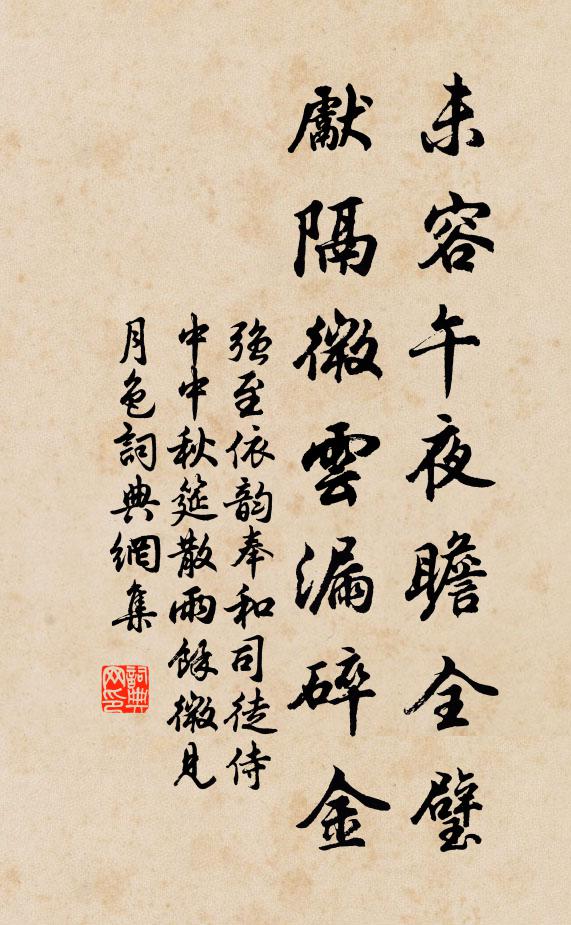 未容午夜瞻全璧
獻隔微雲漏碎金
強至依韵奉和司徒侍
中中秋筵散雨餘微見
月色詞典網集
詞典
网印